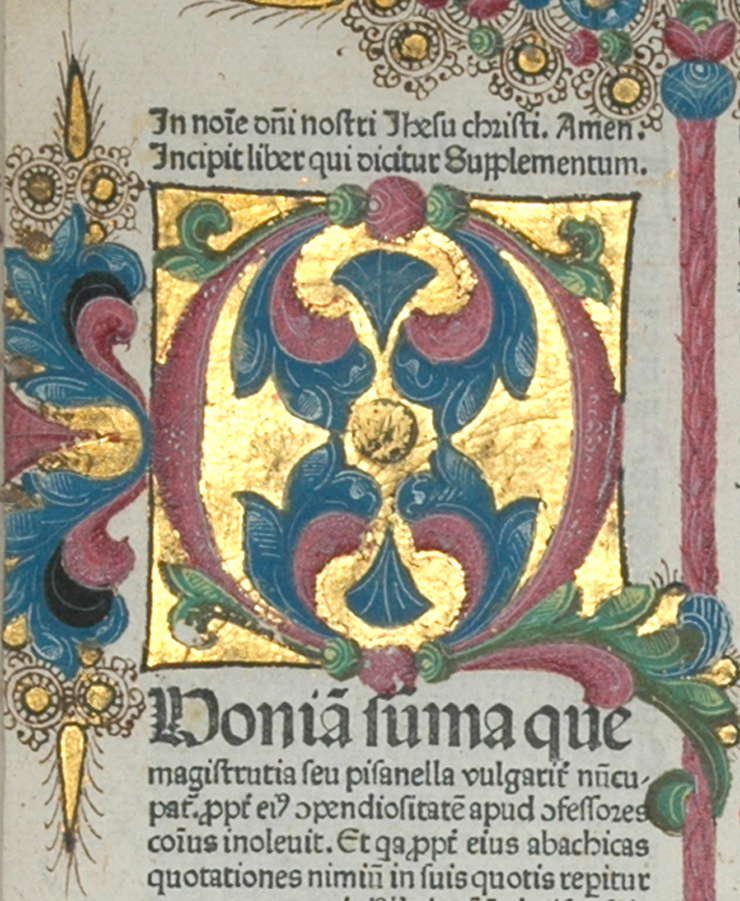 In noīe dn̄i nostri Jhesu christi. Amen.
Incipit liber qui dicitur Supplementum.
Q
Uoniā sūma que
magistrutia seu pisanella vulgarit̄ nūcu-
pat̄. ꝓpt̄ eiꝰ ↄpendiositatē apud ↄfessores
coīus inoleuit. Et qa ꝓpt̄ eius abachicas
quotationes nimiū in suis quotis repitur